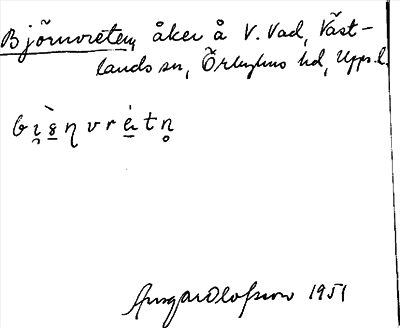 Björnvreten, åker å V. Vad, Väst-
lands sn, Örbyhus hd, Upps. l.
bi̯s̲ηvrèi̲tn̥
Ansgar Olofsson 1951